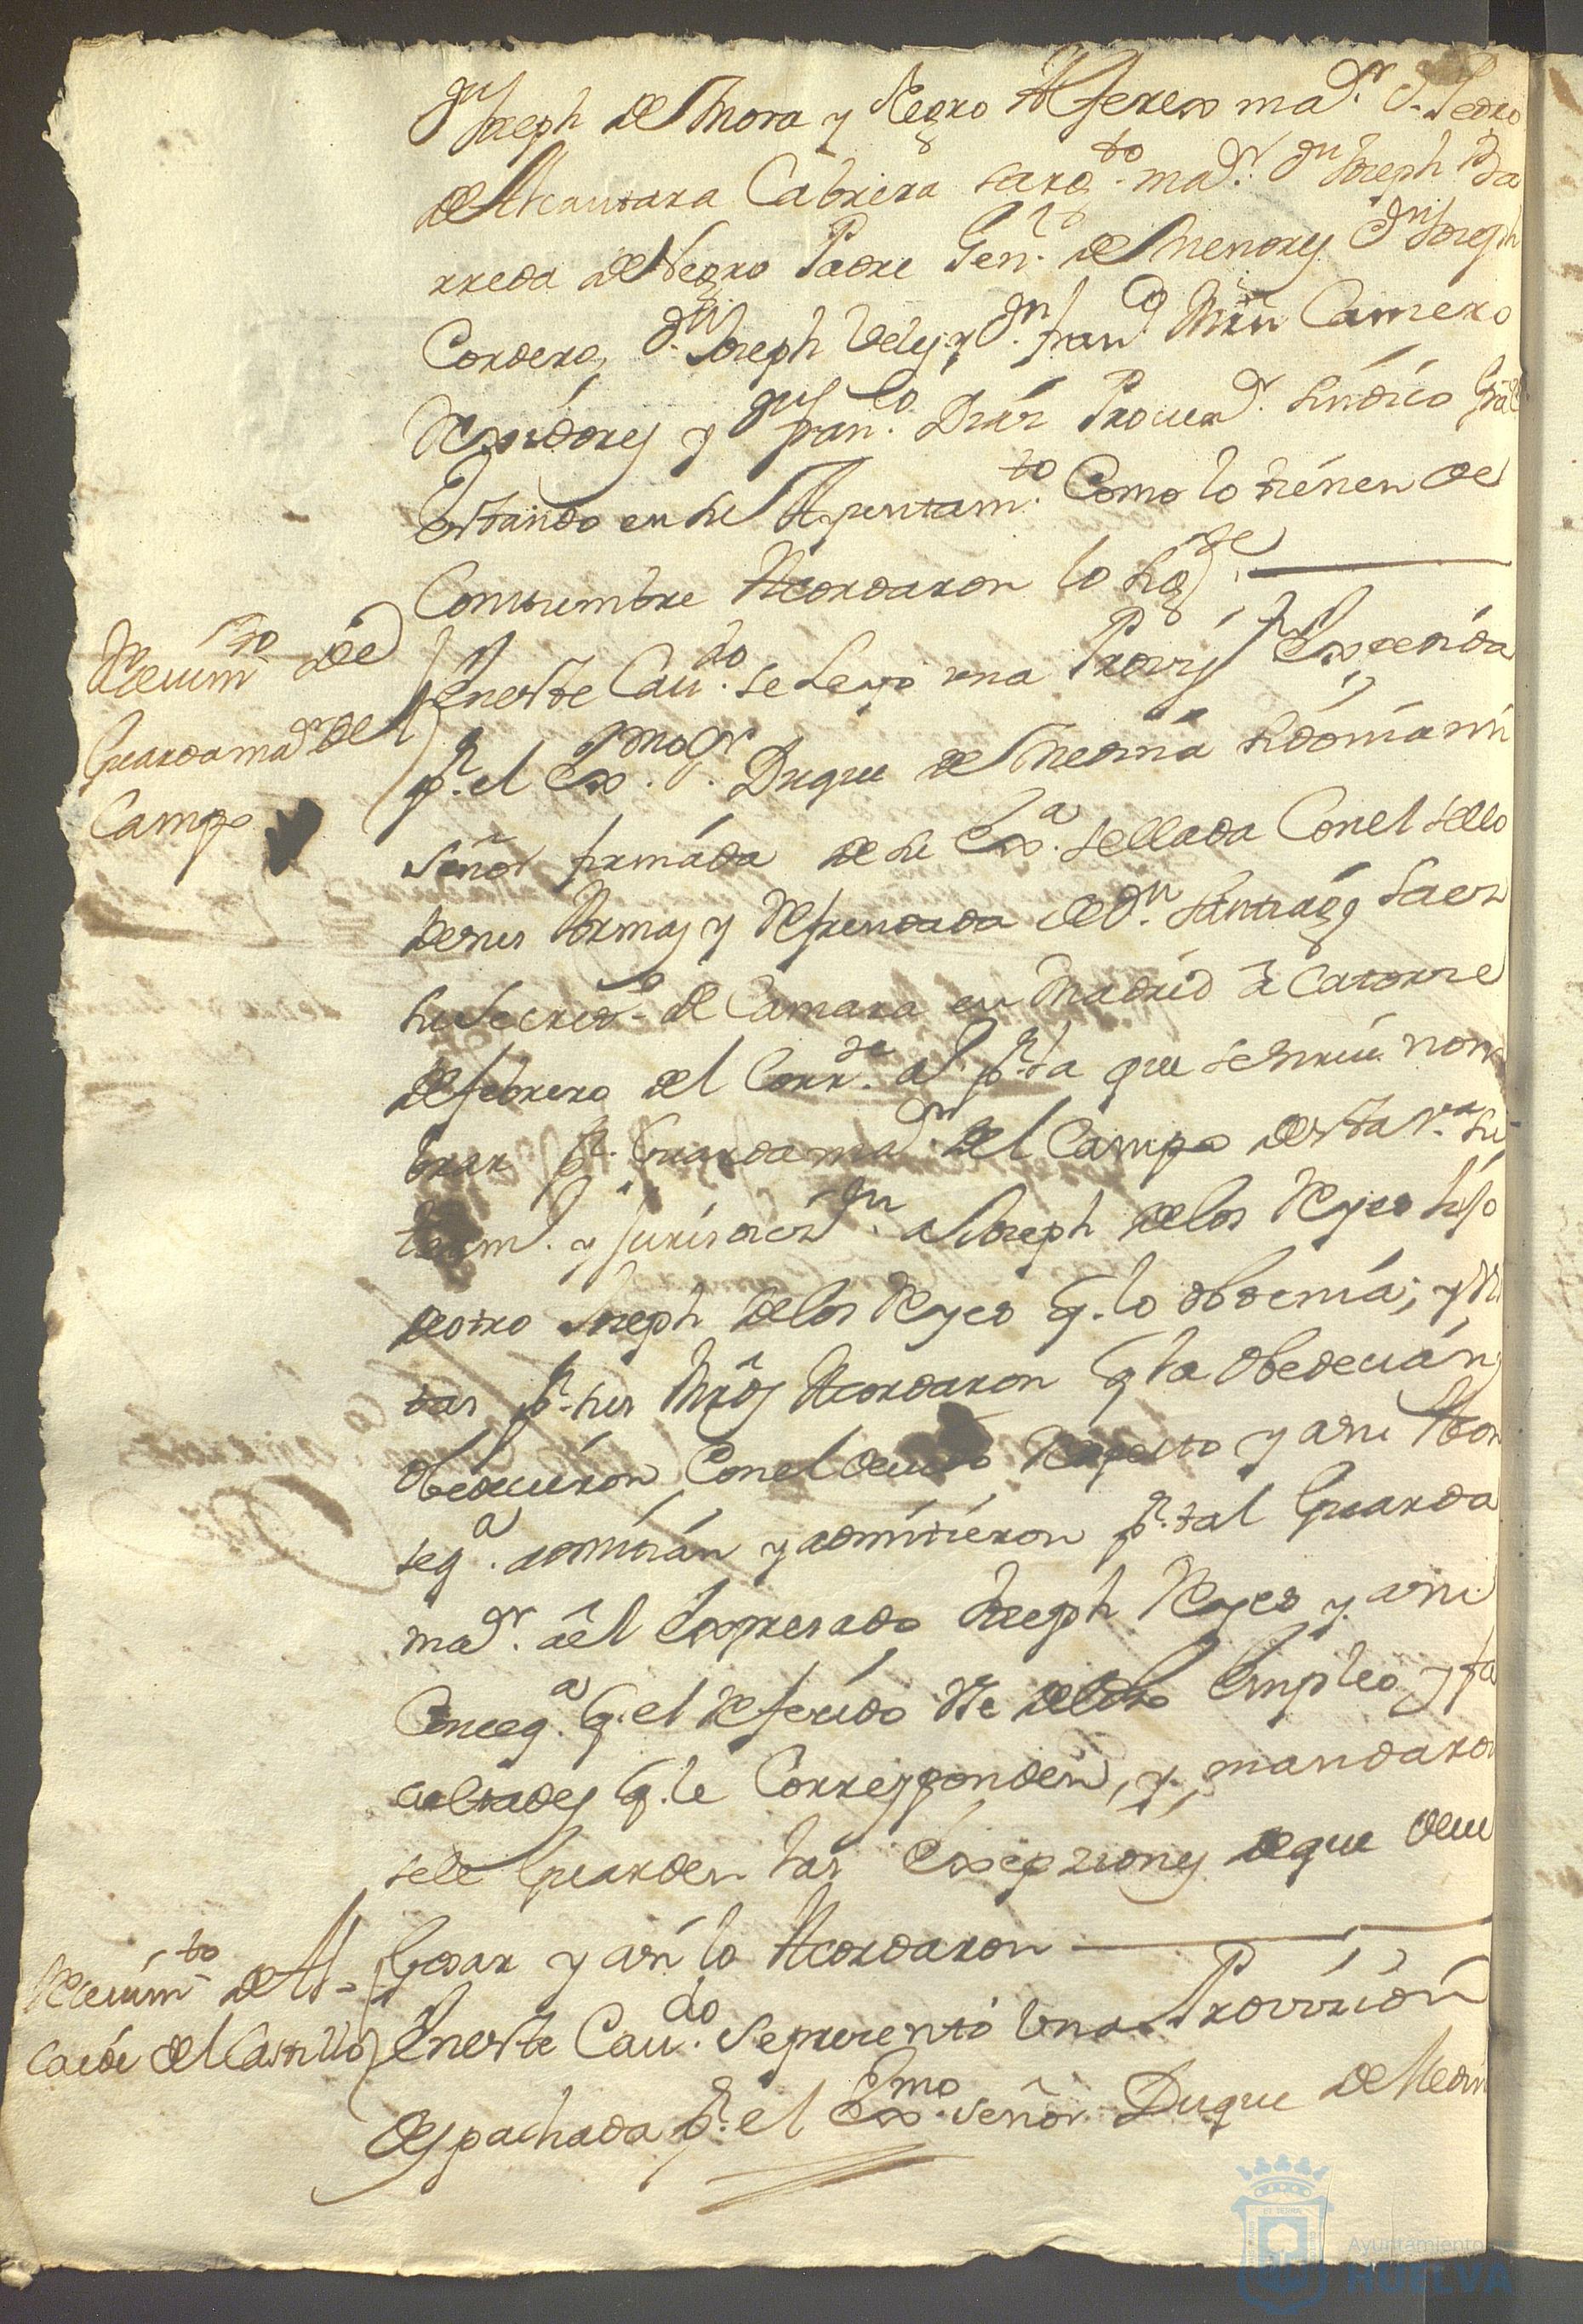 Dn Joseph de Mora y Negro Alferes mar. Dn. Pedro
de Alcantara Cabrera sargto. mar. Dn Joseph Ba
rreda de Negro Padre Genl. de Menores Dn Joseph
Cordero, Dn. Joseph Velez y Dn. franco Mrn Camero
Rexidores y Dn franco. Diaz Procurr. sindico Gral
estando en su Ayuntamto. Como lo tienen de
Constumbre Acordaron lo sigte.
Recivimto de
Guardamar del
Campo
En este Cavdo. se Leyo una Provisn Expedida
pr. el Exmo. Sr. Duque de Medina Sidonia mi
señor firmada de su Exa. sellada Con el sello
de sus Armas y Refrendada de Dn. Santiago Saez
su Secreto. de Camara en Madrid à Catorze
de febrero del Corrte. a pr. la que se sirve nom
brar pr. Guardamar. del Campo de esta va. su
term. y Jurisdizn. a Joseph de los Reyes hijo
de otro Joseph de los Reyes q. lo obtenia; y
pr. sus Mrds Acordaron q la Obedecian
Obedecieron Con el devido Respecto y en su
sega. admitian y admitieron pr. tal Guarda
mar. àel Expresado Joseph Reyes y en su
Consega. q. el Referido Use de dho Empleo y fa
cultades q. le Corresponden, y mandaron
se le Guarden las Exepziones de que deve
Gosar y asi lo Acordaron
Recivimto de Al-
caide del Castillo
En este Cavdo. se presentò una Provision
despachada pr. el Exmo. señor Duque de Medin
Ayuntamiento de
HUELVA